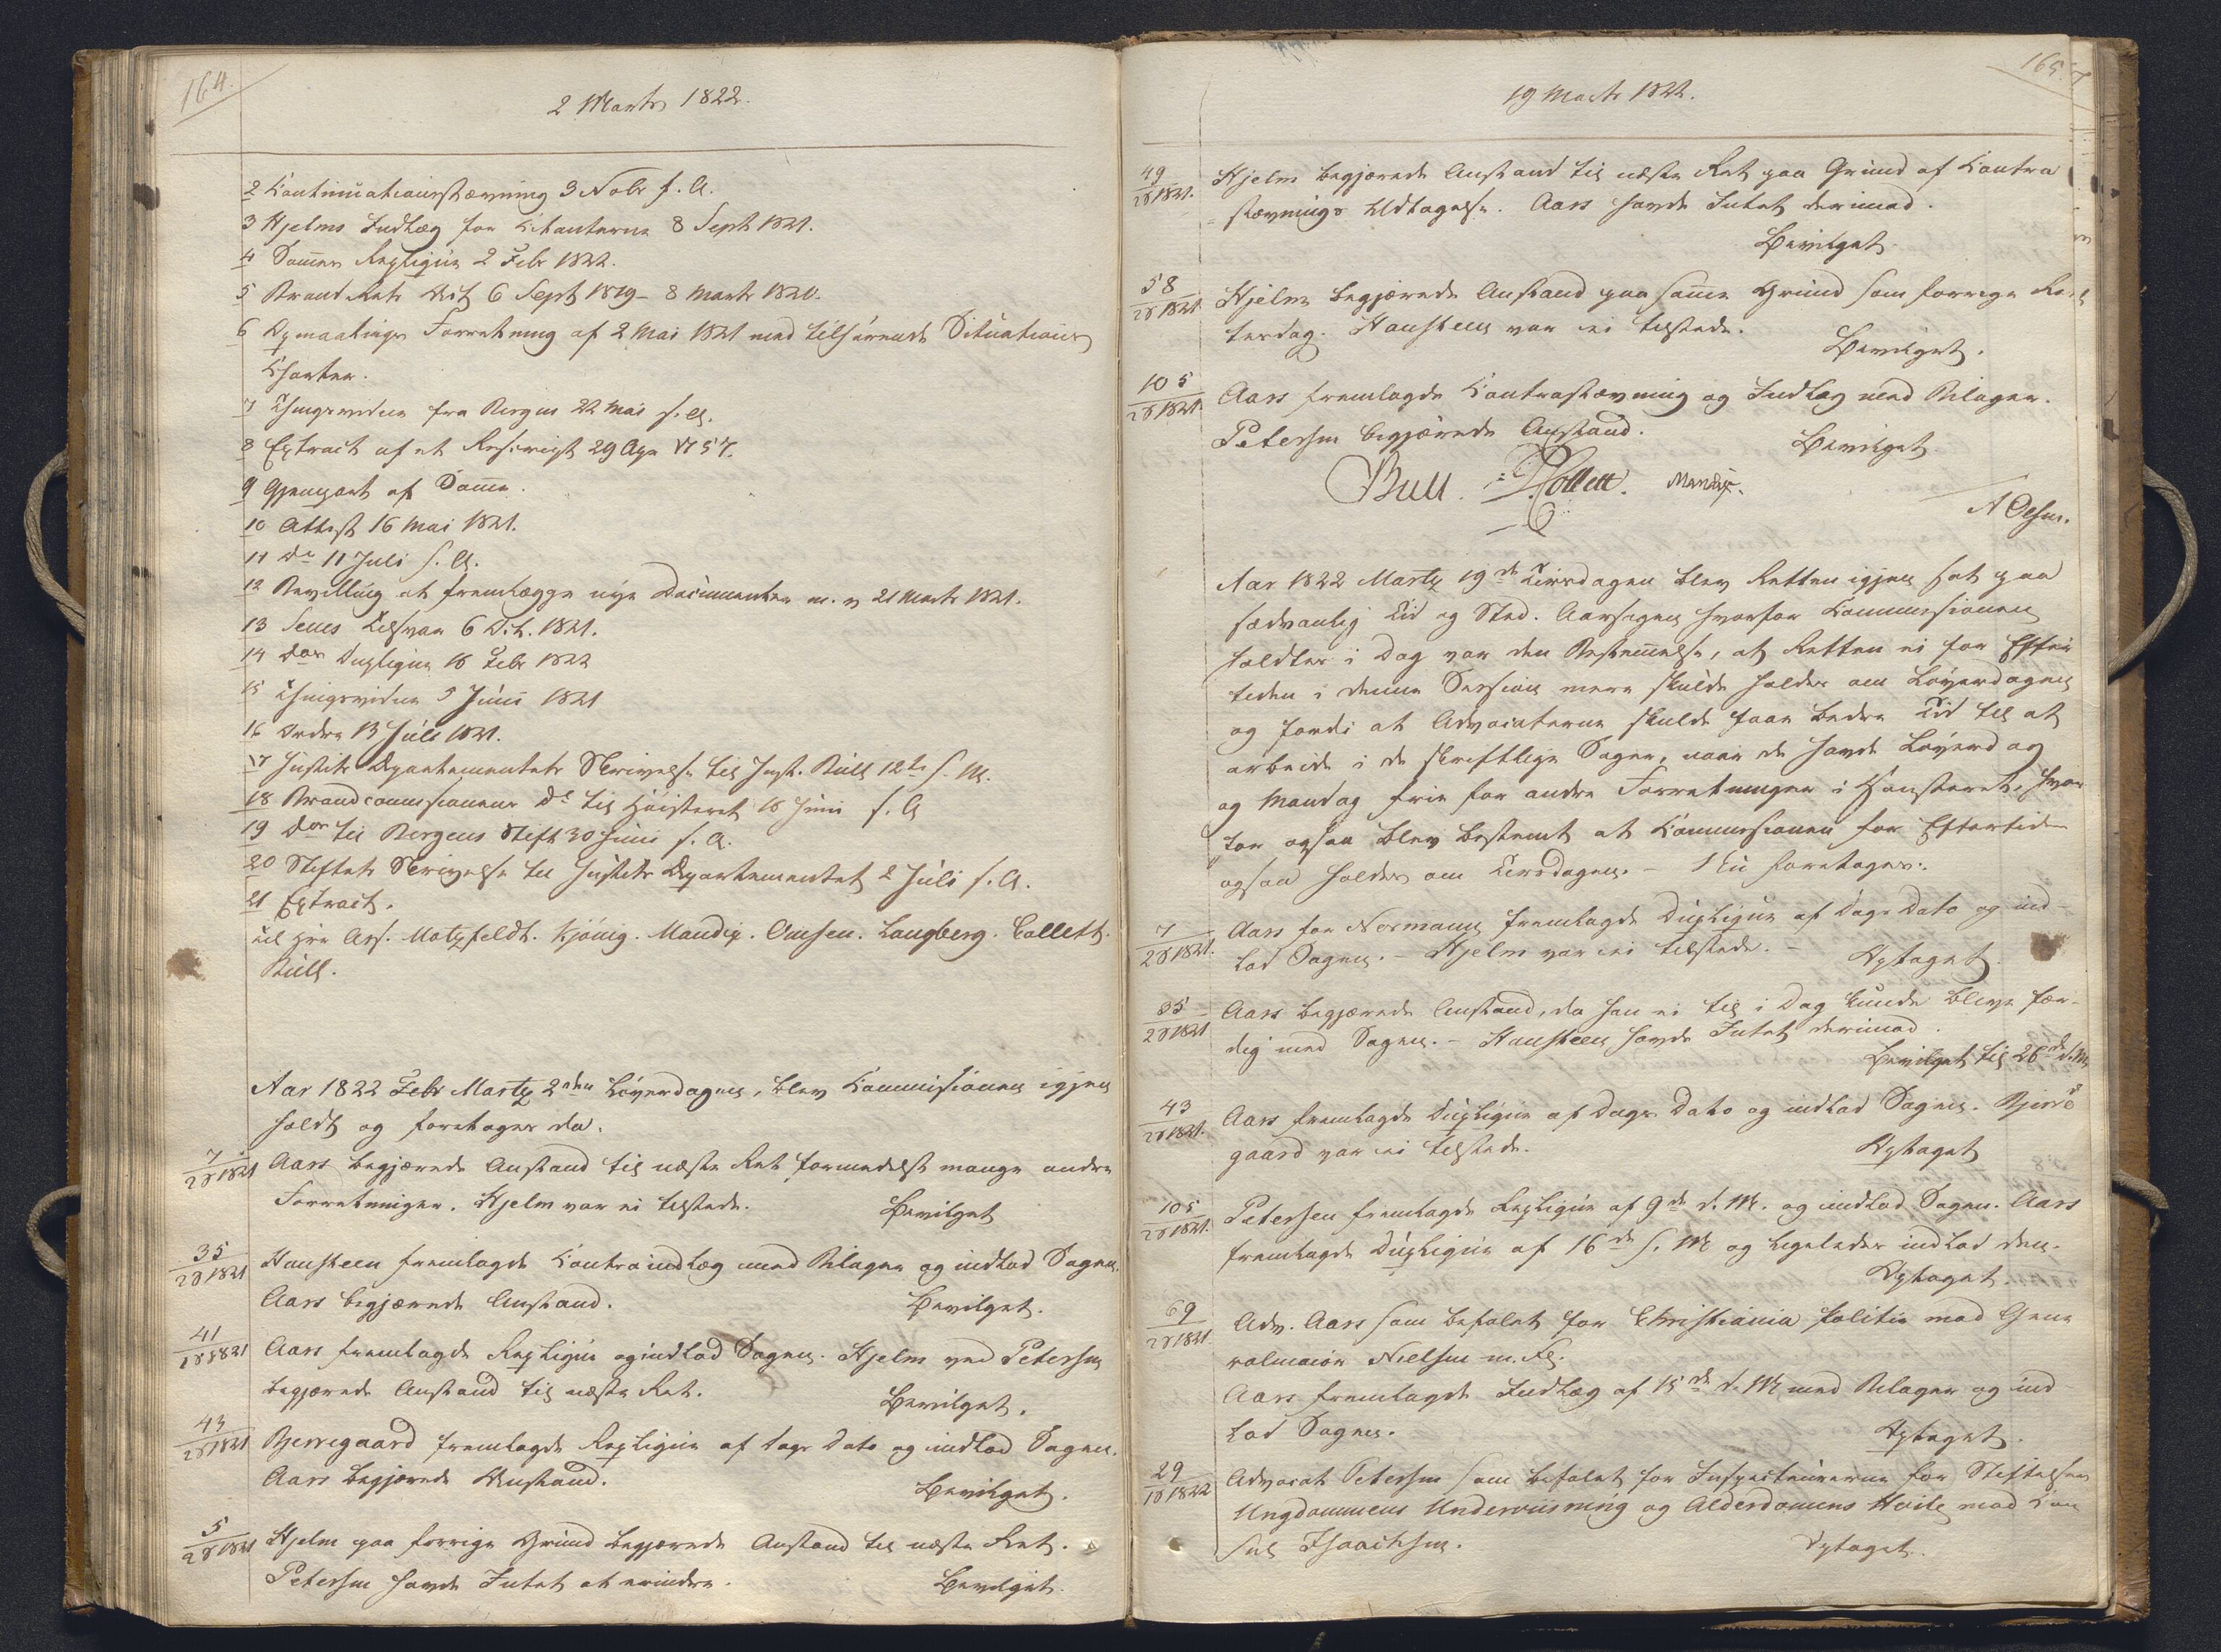 164.
2 Marts 1822.
2 Continuationsstævning 3 Nobr f. A.
3 Hjelms Indlæg for Citanterne 8 Sept 1821.
4 Sammes Repliqve 2 Febr 1822.
5 Brand Rets Act 6 Sept 1819 - 8 Marts 1820.
6 Opmaalings Forretning af 2 Mai 1821 med tilhørende Situations
Charter.
7 Thingsvidne fra Bergen 22 Mai s. A.
8 Extract af et Rescript 29 Apr 1757.
9 Gjenpart af Samme.
10 Attest 16 Mai 1821.
11 Do 11 Juli s. A.
12 Bevilling at fremlægge nye Documenter m. v 21 Marts 1821.
13 Tilsvar 6 1821.
14 Dupliqve 18 Febr 1822
15 Thingsvidne 5 Juni 1821
16 Ordre 13 Juli 1821.
17 Justits Departementets Skrivelse til Just. Bull 12te s. M.
18 Brandcommissionens Do til Høiesteret 18 Juni s. A
19 Dos til Bergens Stift 30 Juni s. A.
20 Stiftets Skrivelse til Justits Departementet 2 Juli s. A.
21 Extract.
til Hrr Ass. Motzfeldt. Kjønig. Mandix. Omsen. Langberg. Collett.
Bull.
Aar 1822 Febr Martz 2den Løverdagen, blev Commissionen igjen
holdt og foretoges da.
7/28 1821 Aars begjærede Anstand til næste Ret formedelst mange andre
Forretninger. Hjelm var ei tilstede. Bevilget
35/28 1821 Hansteen fremlagde Contraindlæg med Bilager og indlod Sagen.
Aars begjærede Anstand. Bevilget.
41/18 1821 Aars fremlagde Repliqve og indlod Sagen. Hjelm ved Petersen
begjærede Anstand til næste Ret. Bevilget.
43/28 1821 Bjerregaard fremlagde Repliqve af Dags Dato og indlod Sagen.
Aars begjærede Anstand. Bevilget.
5/28 1821 Hjelm paa forrige Grund begjærede Anstand til næste Ret.
Petersen havde Intet at erindre. Bevilget
165.
19 Marts 1822.
49/28 1821. Hjelm begjærede Anstand til næste Ret paa Grund af Contra
stævnings Udtagelse. Aars havde Intet derimod.
Bevilget.
58/28 1821 Hjelm begjærede Anstand paa samme Grund som forrige Ret
terdag. Hansteen var ei tilstede. Bevilget.
105/28 1821. Aars fremlagde Contrastævning og Indlæg med Bilager.
Petersen begjærede Anstand. Bevilget
Bull. Collett. Mandix.
Aar 1822 Martz 19de Tirsdagen blev Retten igjen sat paa
sædvanlig Tid og Sted. Aarsagen hvorfor Commissionen
holdtes i Dag var den Bestemmelse, at Retten ei for Efter
tiden i denne Session mere skulde holdes om Løverdagen
og fordi at Advocaterne skulde faae bedre Tid til at
arbeide i de skriftlige Sager, naar de havde Løverdag
og Mandag frie for andre Forretninger i Høiesteret, hvor
for ogsaa blev bestemt at Commissionen for Eftertiden
ogsaa holdes om Tirsdagen. - Nu foretoges:
7/28 1821. Aars for Normann fremlagde Dupliqve af Dags Dato og ind-
lod Sagen. - Hjelm var ei tilstede. - Optaget.
35/28 1821 Aars begjærede Anstand, da han ei til i Dag kunde blive fær-
dig med Sagen. - Hansteen havde Intet derimod.
Bevilget til 26de d. M.
43/28 1821. Aars fremlagde Dupliqve af Dags Dato og indlod Sagen. Bjerre
gaard var ei tilstede. Optaget
105/28 1821. Petersen fremlagde Repliqve af 9de d. M. og indlod Sagen. Aars
fremlagde Dupliqve af 16de s. M og ligeledes indlod den.
Optaget.
69/28 1821. Adv. Aars som befalet for Christiania Politie mod Gene
ralmaior Nielsen m. Fl.
Aars fremlagde Indlæg af 15de d. M med Bilager og ind
lod Sagen. Optaget.
29/18 1822 Advocat Petersen som befalet for Inspecteurerne for Stiftelsen
Ungdommens Underviisning og Alderdommens Hvile mod Con
sul Isaachsen. Optaget.